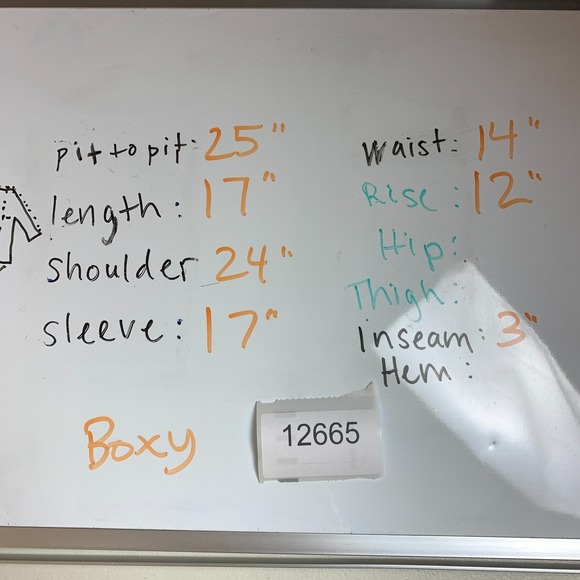 pit to pit: 25"
length: 17"
shoulder 24"
sleeve: 17"
Waist: 14"
Rise: 12"
Hip:
Thigh:
Inseam: 3"
Hem:
Boxy
12665